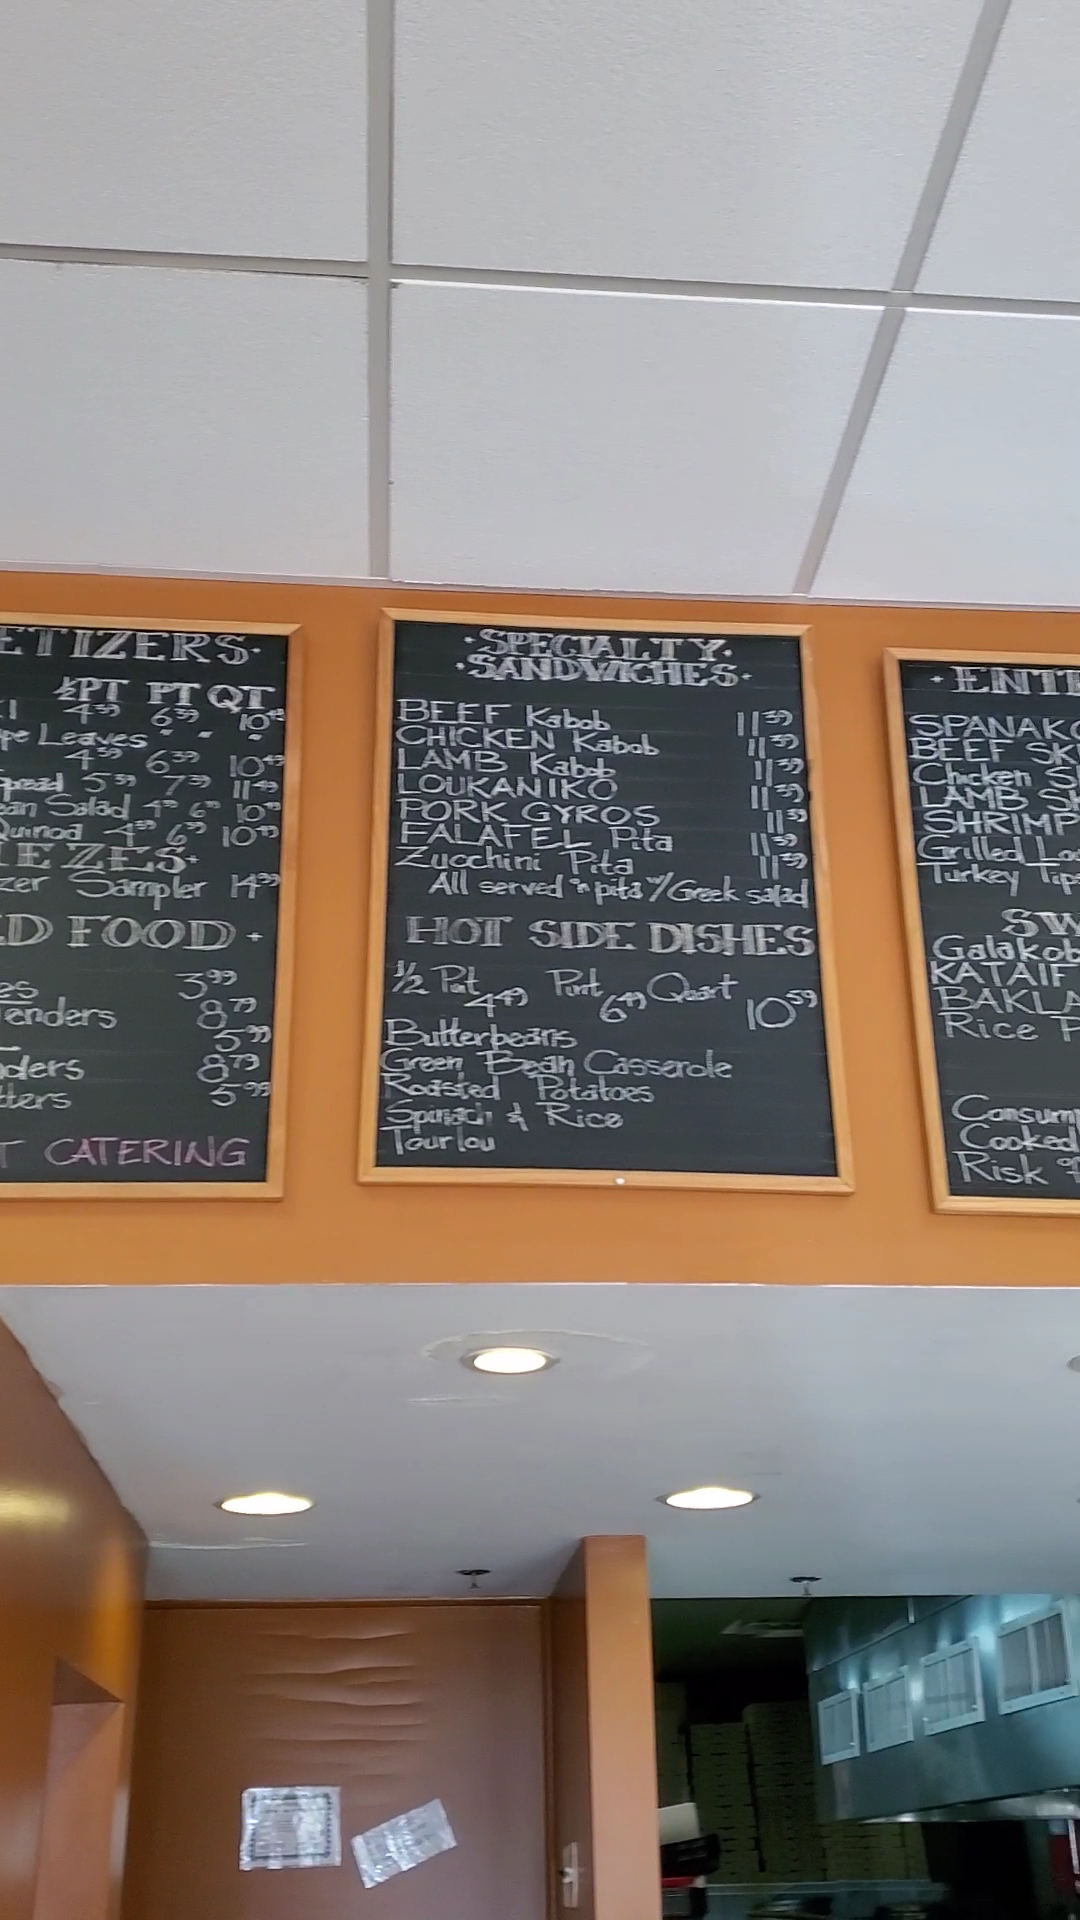 ETIZERS
½PT PT QT
4.59 6.59 10.49
pe Leaves " " "
4.59 6.59 10.49
Spread 5.59 7.59 11.49
ean Salad 4.59 6.59 10.49
Quinoa 4.59 6.59 10.49
EZES
zer Sampler 14.99
ED FOOD
es 3.99
enders 8.79
5.99
nders 8.79
tters 5.99
T CATERING
·SPECIALTY·
·SANDWICHES·
BEEF Kabob 11.59
CHICKEN Kabob 11.59
LAMB Kabob 11.59
LOUKANIKO 11.59
PORK GYROS 11.59
FALAFEL Pita 11.59
Zucchini Pita 11.59
All served in pita w/Greek salad
HOT SIDE DISHES
½ Pint Pint Quart
4.49 6.49 10.59
Butterbeans
Green Bean Casserole
Roasted Potatoes
Spinach & Rice
Tourlou
·ENTR
SPANAKO
BEEF SK
Chicken S
LAMB SH
SHRIMP
Grilled Lo
Turkey Tips
SW
Galakob
KATAIF
BAKLA
Rice P
Consum
Cooked
Risk of